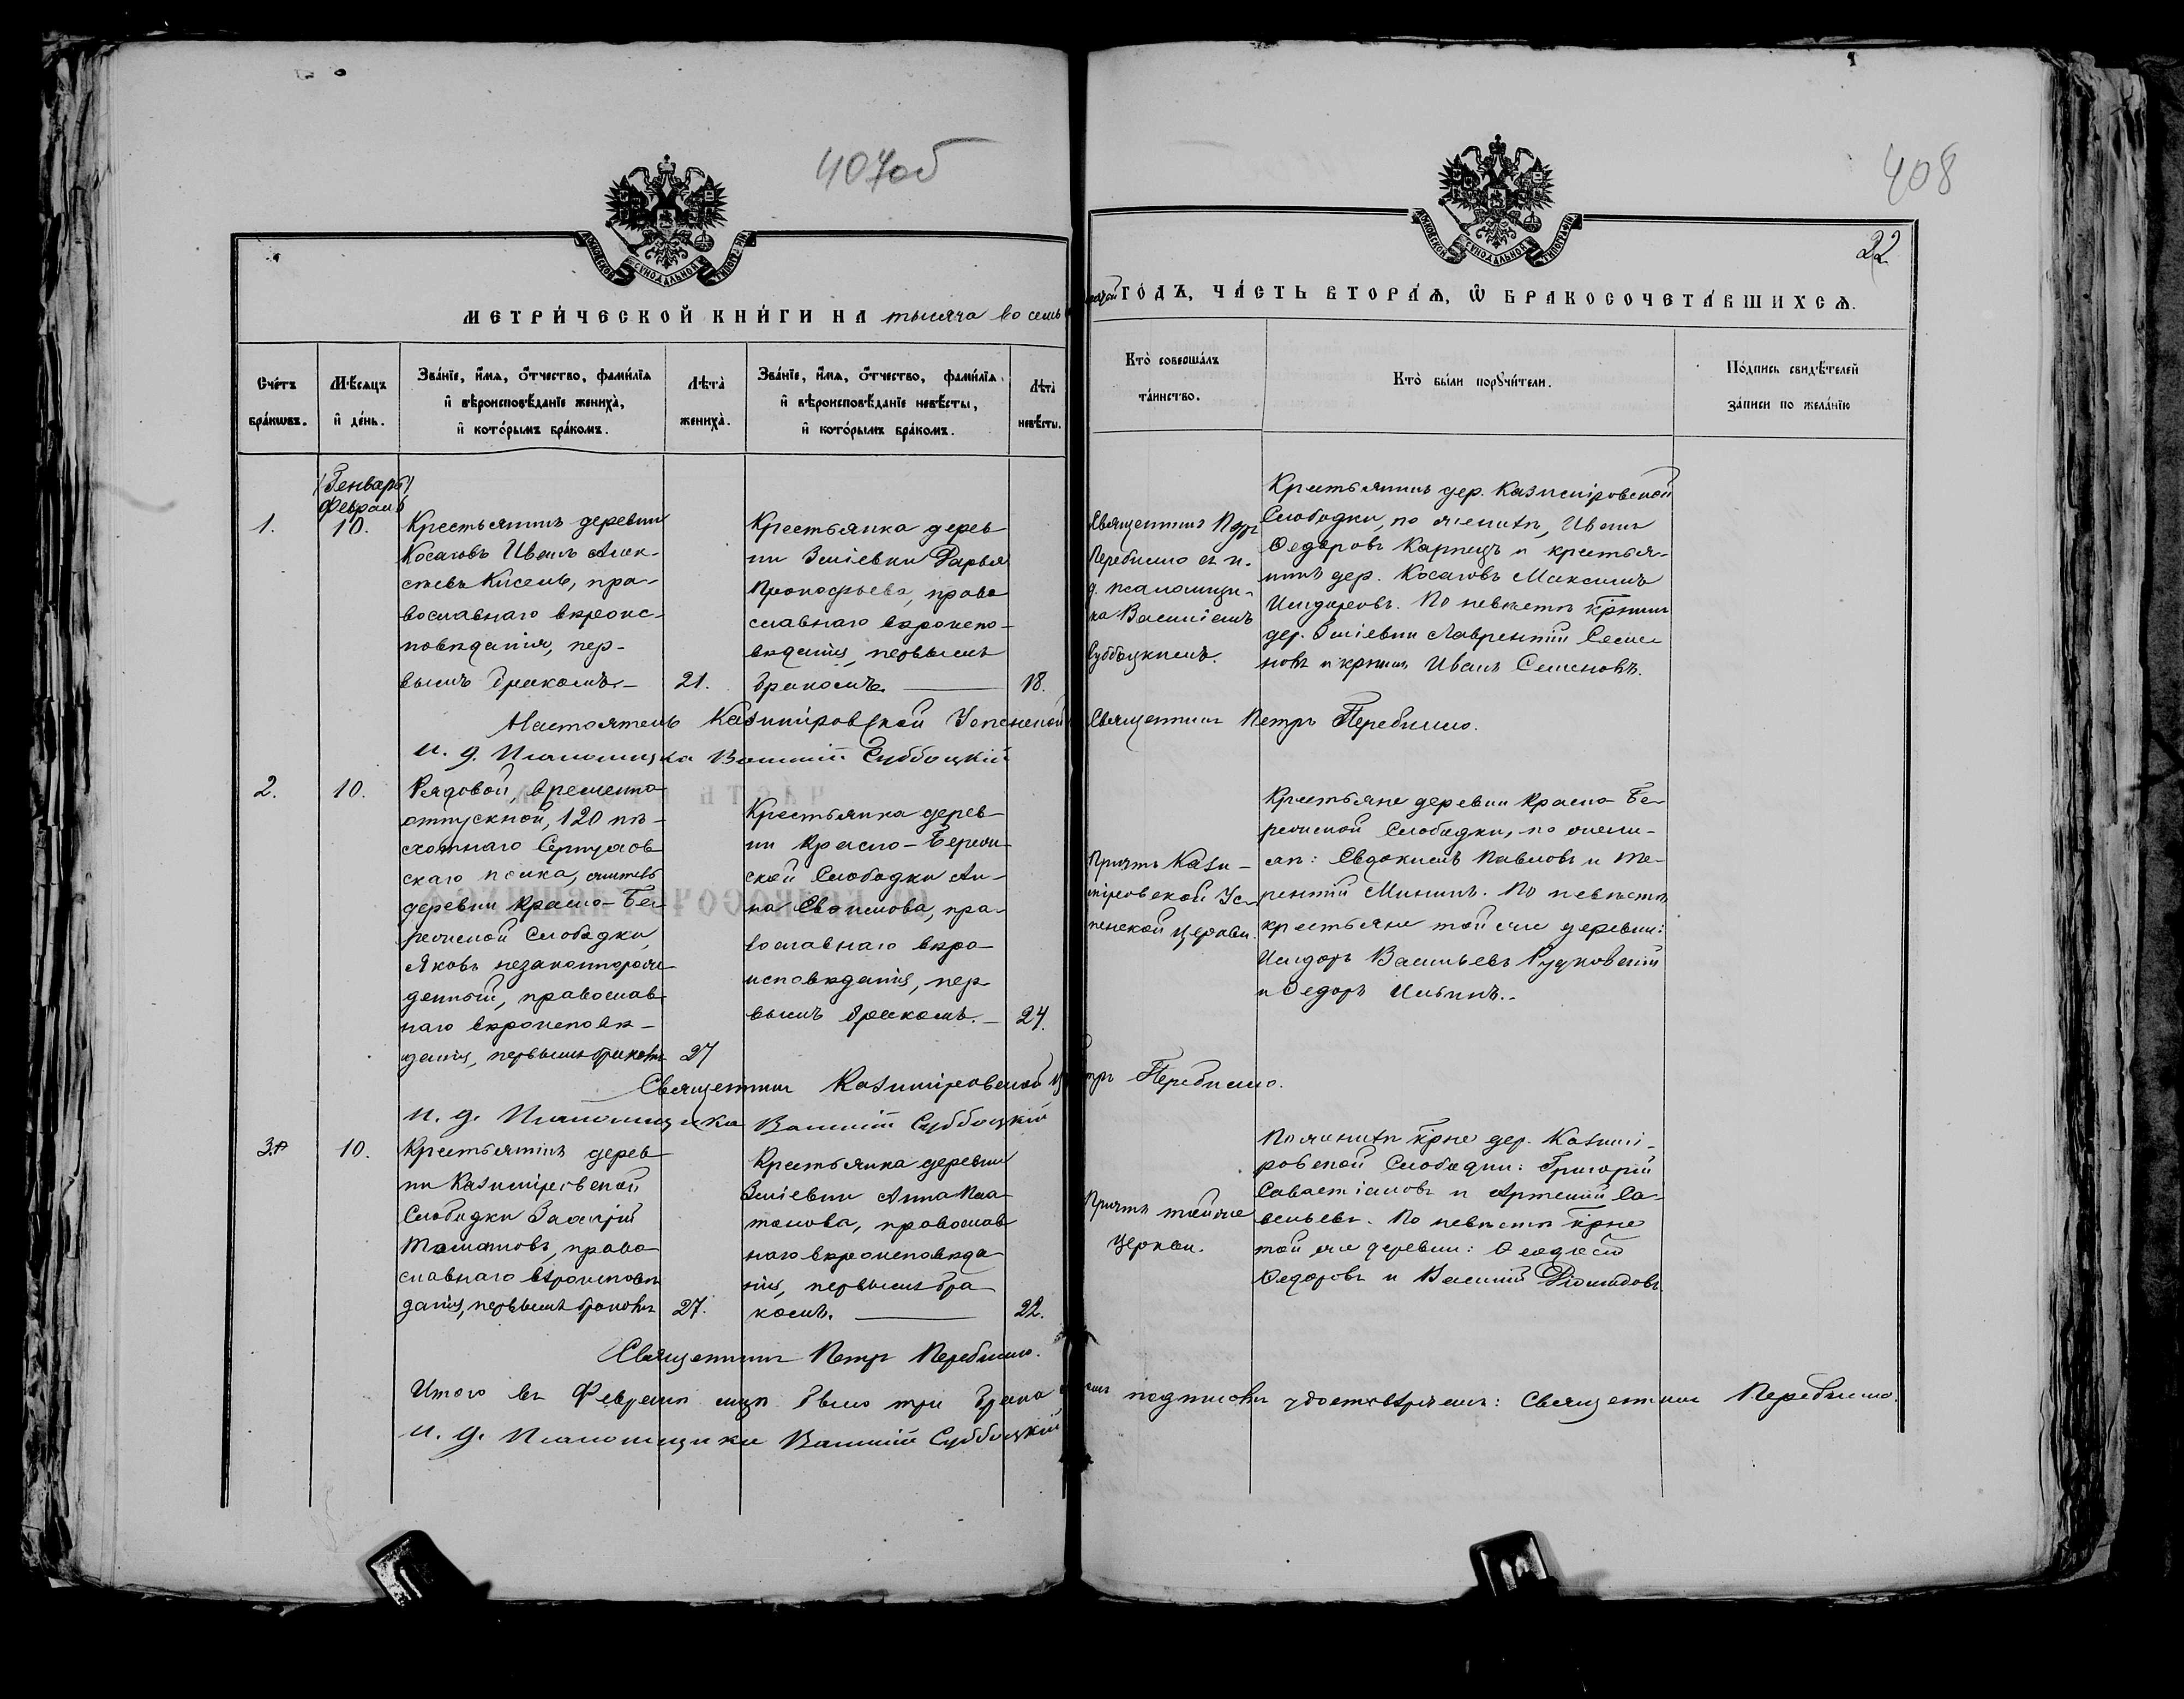 407об
408
22
МОСКОВСКОЙ СУНОДАЛЬНОЙ ТИПОГРАФІИ
МОСКОВСКОЙ СУНОДАЛЬНОЙ ТИПОГРАФІИ
МЕТРИ́ЧЕСКОЙ КНИ́ГИ НА тысяча восемь
ГО́ДЪ, ЧА́СТЬ ВТОРА́Ѧ, Ѡ҆ БРАКОСОЧЕТА́ВШИХСѦ.
Сче́тъ бра́кѡвъ.
Мѣ́сяцъ и҆ де́нь.
Зва́нїе, и҆́мѧ, ѻ҆́тчество, фами́лїѧ
и҆ вѣроисповѣ́данїе жениха̀,
и҆ кото́рымъ бра́комъ.
Лѣта̀ жениха̀.
Зва́нїе, и҆́мѧ, ѻ҆́тчество, фами́лїѧ
и҆ вѣроисповѣ́данїе невѣ́сты,
и҆ кото́рымъ бра́комъ.
Лѣта̀ невѣ́сты.
Кто̀ соверша́лъ
та́инство.
Кто̀ бы́ли порꙋчи́тели.
По́дпись свидѣ́телей
за́писи по жела́нїю
Генварь
Февраль
1.
10.
Крестьянинъ деревни
Косаровъ Иванъ Алек-
сѣевъ Кисель, пра-
вославнаго вѣроис-
повѣданія, пер-
вымъ бракомъ.
21.
Крестьянка дерев
ни Зміевки Дарья
Прокофьева, право
славнаго вѣроиспо-
вѣданія, первымъ
бракомъ.
18.
Священникъ Петръ
Перебилло съ и.
д. псаломщи-
ка Василіемъ
Субботскимъ.
Крестьянинъ дер. Казиміровской
Слободки, по женихѣ, Иванъ
Ѳедоровъ Карпецъ и крестья-
нинъ дер. Косаровъ Максимъ
Исидоровъ. По невѣстѣ кр-нинъ
дер. Зміевки Лаврентій Семе
новъ и кр-нинъ Иванъ Семеновъ.
Настоятель Казиміровской Успенской
Священникъ Петръ Перебилло.
И. д. Псаломщика Василій Субботскій
2.
10.
Рядовой, временно
отпускной, 120 пѣ-
хотнаго Серпухов
скаго полка, житель
деревни Красно-Бе-
режской Слободки,
Яковъ незаконнорож-
денный, православ
наго вѣроисповѣ-
данія, первымъ бракомъ
27
Крестьянка дерев-
ни Красно-Береж-
ской Слободки Ан-
на Евдокимова, пра-
вославнаго вѣро
исповѣданія, пер
вымъ бракомъ.
24.
Причтъ Кази-
міровской Ус-
пенской церкви.
Крестьяне деревни Красно-Бе-
режской Слободки, по жени-
хѣ: Евдокимъ Павловъ и Те-
рентій Мининъ. По невѣстѣ
крестьяне той же деревни:
Исидоръ Васильевъ Рудковскій
и Ѳедоръ Ильинъ.
Священникъ Казиміровской
Перебилло.
И. д. Псаломщика Василій Субботскій
3.
10.
Крестьянинъ дерев
ни Казиміровской
Слободки
право
славнаго вѣроисповѣ
данія, первымъ бракомъ
27.
Крестьянка деревни
Зміевки Анна Пла
тонова, православ
наго вѣроисповѣда
нія, первымъ бра
комъ.
22.
Причтъ той же
церкви.
По женихѣ кр-не дер. Казимі-
ровской Слободки: Григорій
Савастіановъ и Артемій Са-
вельевъ. По невѣстѣ кр-не
той же деревни: Ѳеодосій
Ѳедоровъ и Василій Діомидовъ.
Священникъ Петръ Перебилло.
Итого въ Февралѣ мцѣ было три брака,
подписомъ удостовѣряемъ: Священникъ Перебилло.
И. д. Псаломщика Василій Субботскій